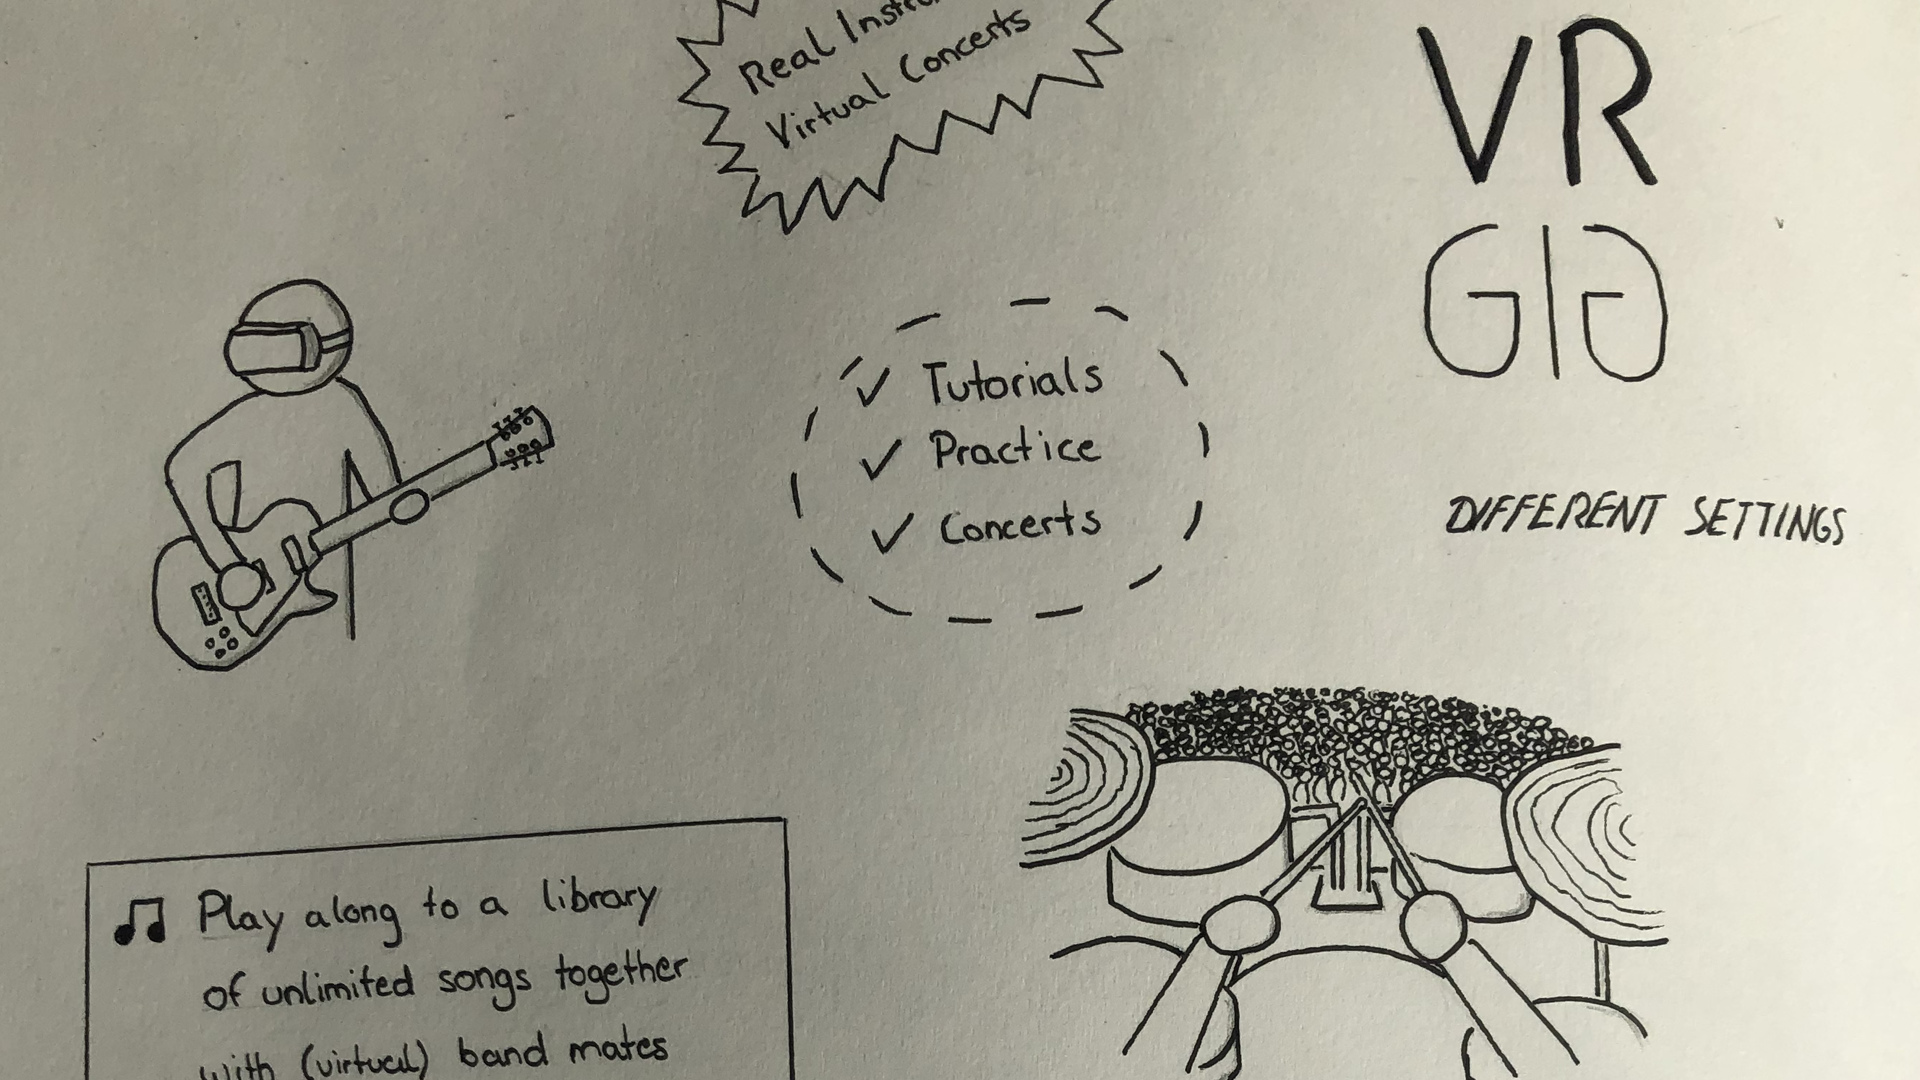 Real
Virtual Concerts
VR
GIG
✓ Tutorials
✓ Practice
✓ Concerts
DIFFERENT SETTINGS
♫ Play along to a library
of unlimited songs together
with (virtual) band mates